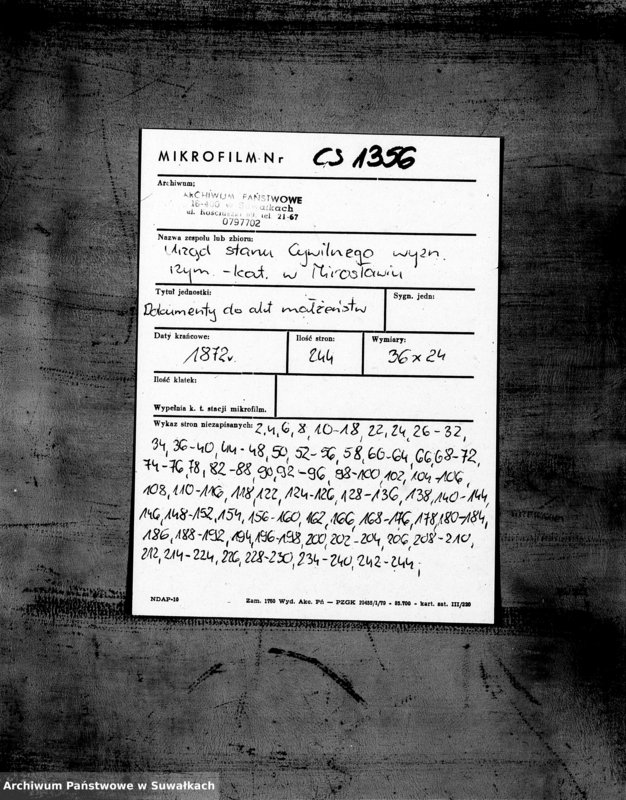 MIKROFILM Nr CS 1356
Archiwum:
ARCHIWUM PAŃSTWOWE
16-400 w Suwałkach
ul. Kościuszki tel 21-67
0797702
Nazwa zespołu lub zbioru:
Urząd stanu Cywilnego wyzn.
rzym. -kat. w Mirosławiu
Tytuł jednostki:
Sygn. jedn:
Dokumenty do akt małżeństw
Daty krańcowe:
Ilość stron:
Wymiary:
1872r.
244
36 x 24
Ilość klatek:
Wypełnia k. t. stacji mikrofilm.
Wykaz stron niezapisanych: 2,4,6,8,10-18,22,24,26-32,
34,36-40,44-48,50,52-56,58,60-64,66,68-72,
74-76,78,82-88,90,92-96,98-100,102,104-106,
108,110-116,118,122,124-126,128-136,138,140-144,
146,148-152,154,156-160,162,166,168-176,178,180-184,
186,188-192,194,196-198,200,202-204,206,208-210,
212,214-224,226,228-230,234-240,242-244,
NDAP-10
Zam. 1760 Wyd. Akc. Pń — PZGK
kart. sat. III/220
Archiwum Państwowe w Suwałkach